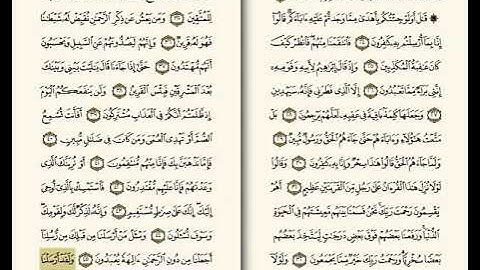 ۞ قَٰلَ أَوَلَوْ جِئْتُكُم بِأَهْدَىٰ مِمَّا وَجَدتُّمْ عَلَيْهِ ءَابَآءَكُمْ قَالُوٓا۟
إِنَّا بِمَآ أُرْسِلْتُم بِهِۦ كَٰفِرُونَ ٢٤ فَٱنتَقَمْنَا مِنْهُمْ فَٱنظُرْ كَيْفَ
كَانَ عَٰقِبَةُ ٱلْمُكَذِّبِينَ ٢٥ وَإِذْ قَالَ إِبْرَٰهِيمُ لِأَبِيهِ وَقَوْمِهِۦٓ
إِنَّنِى بَرَآءٌ مِّمَّا تَعْبُدُونَ ٢٦ إِلَّا ٱلَّذِى فَطَرَنِى فَإِنَّهُۥ سَيَهْدِينِ
٢٧ وَجَعَلَهَا كَلِمَةًۢ بَاقِيَةً فِى عَقِبِهِۦ لَعَلَّهُمْ يَرْجِعُونَ ٢٨ بَلْ
مَتَّعْتُ هَٰٓؤُلَآءِ وَءَابَآءَهُمْ حَتَّىٰ جَآءَهُمُ ٱلْحَقُّ وَرَسُولٌ مُّبِينٌ ٢٩
وَلَمَّا جَآءَهُمُ ٱلْحَقُّ قَالُوا۟ هَٰذَا سِحْرٌ وَإِنَّا بِهِۦ كَٰفِرُونَ ٣٠ وَقَالُوا۟
لَوْلَا نُزِّلَ هَٰذَا ٱلْقُرْءَانُ عَلَىٰ رَجُلٍ مِّنَ ٱلْقَرْيَتَيْنِ عَظِيمٍ ٣١ أَهُمْ
يَقْسِمُونَ رَحْمَتَ رَبِّكَ نَحْنُ قَسَمْنَا بَيْنَهُم مَّعِيشَتَهُمْ فِى ٱلْحَيَوٰةِ
ٱلدُّنْيَا وَرَفَعْنَا بَعْضَهُمْ فَوْقَ بَعْضٍ دَرَجَٰتٍ لِّيَتَّخِذَ بَعْضُهُم
بَعْضًا سُخْرِيًّا وَرَحْمَتُ رَبِّكَ خَيْرٌ مِّمَّا يَجْمَعُونَ ٣٢ وَلَوْلَآ
لِلْمُتَّقِينَ ٣٥ وَمَن يَعْشُ عَن ذِكْرِ ٱلرَّحْمَٰنِ نُقَيِّضْ لَهُۥ شَيْطَٰنًا
فَهُوَ لَهُۥ قَرِينٌ ٣٦ وَإِنَّهُمْ لَيَصُدُّونَهُمْ عَنِ ٱلسَّبِيلِ وَيَحْسَبُونَ
أَنَّهُم مُّهْتَدُونَ ٣٧ حَتَّىٰٓ إِذَا جَآءَنَا قَالَ يَٰلَيْتَ بَيْنِى وَبَيْنَكَ
بُعْدَ ٱلْمَشْرِقَيْنِ فَبِئْسَ ٱلْقَرِينُ ٣٨ وَلَن يَنفَعَكُمُ ٱلْيَوْمَ
إِذ ظَّلَمْتُمْ أَنَّكُمْ فِى ٱلْعَذَابِ مُشْتَرِكُونَ ٣٩ أَفَأَنتَ تُسْمِعُ
ٱلصُّمَّ أَوْ تَهْدِى ٱلْعُمْىَ وَمَن كَانَ فِى ضَلَٰلٍ مُّبِينٍ ٤٠
فَإِمَّا نَذْهَبَنَّ بِكَ فَإِنَّا مِنْهُم مُّنتَقِمُونَ ٤١ أَوْ نُرِيَنَّكَ ٱلَّذِى
وَعَدْنَٰهُمْ فَإِنَّا عَلَيْهِم مُّقْتَدِرُونَ ٤٢ فَٱسْتَمْسِكْ بِٱلَّذِىٓ أُوحِىَ
إِلَيْكَ إِنَّكَ عَلَىٰ صِرَٰطٍ مُّسْتَقِيمٍ ٤٣ وَإِنَّهُۥ لَذِكْرٌ لَّكَ وَلِقَوْمِكَ
وَسَوْفَ تُسْـَٔلُونَ ٤٤ وَسْـَٔلْ مَنْ أَرْسَلْنَا مِن قَبْلِكَ مِن رُّسُلِنَآ
أَجَعَلْنَا مِن دُونِ ٱلرَّحْمَٰنِ ءَالِهَةً يُعْبَدُونَ ٤٥ وَلَقَدْ أَرْسَلْنَا